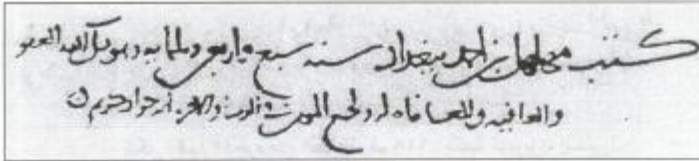 كتب مهلهل بن احمد ببغداد سنه سبع واربعين وثلثمايه وهو يسل الله العفو
والعافيه والمعافاه له ولجميع المومنين في الدنيا والاخره انه جواد كريم